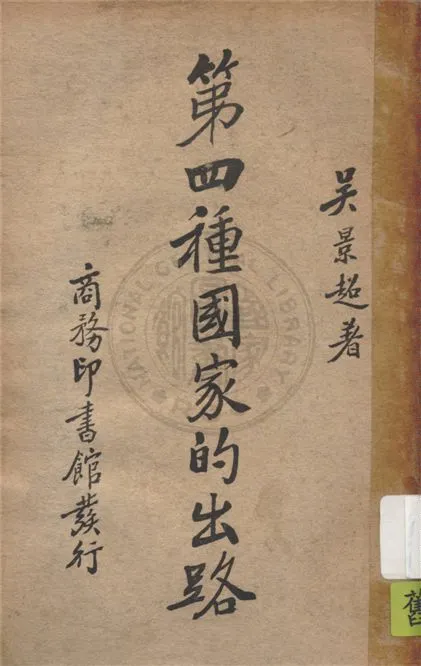 吴景超著
第四種國家的出路
商務印書館發行
NATIONAL CENTRAL LIBRARY
舊